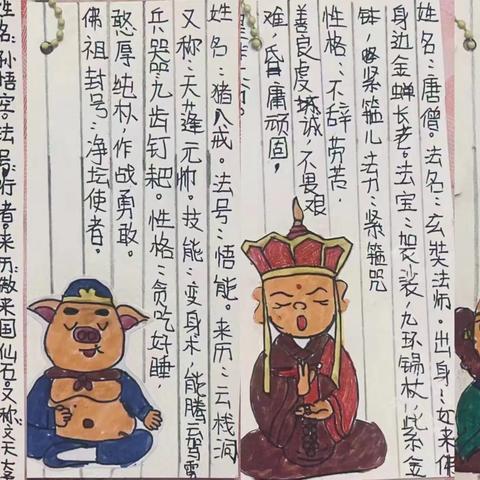 姓名:唐僧。法名:玄奘法师。出身:如来佛
身边金蝉长老。法宝:袈裟,九环锡杖,紫金
钵,紧箍儿 法力:紧箍咒
性格:不辞劳苦,
善良虔诚,不畏艰
难,昏庸顽固,
姓名:猪八戒。法号:悟能。来历:云栈洞
又称:天蓬元帅。技能:变身术,能腾云驾雾
兵器:九齿钉耙。性格:贪吃好睡,
憨厚纯朴,作战勇敢。
佛祖封号:净坛使者。
姓名:孙悟空。法号:行者。来历:傲来国仙石。又称: